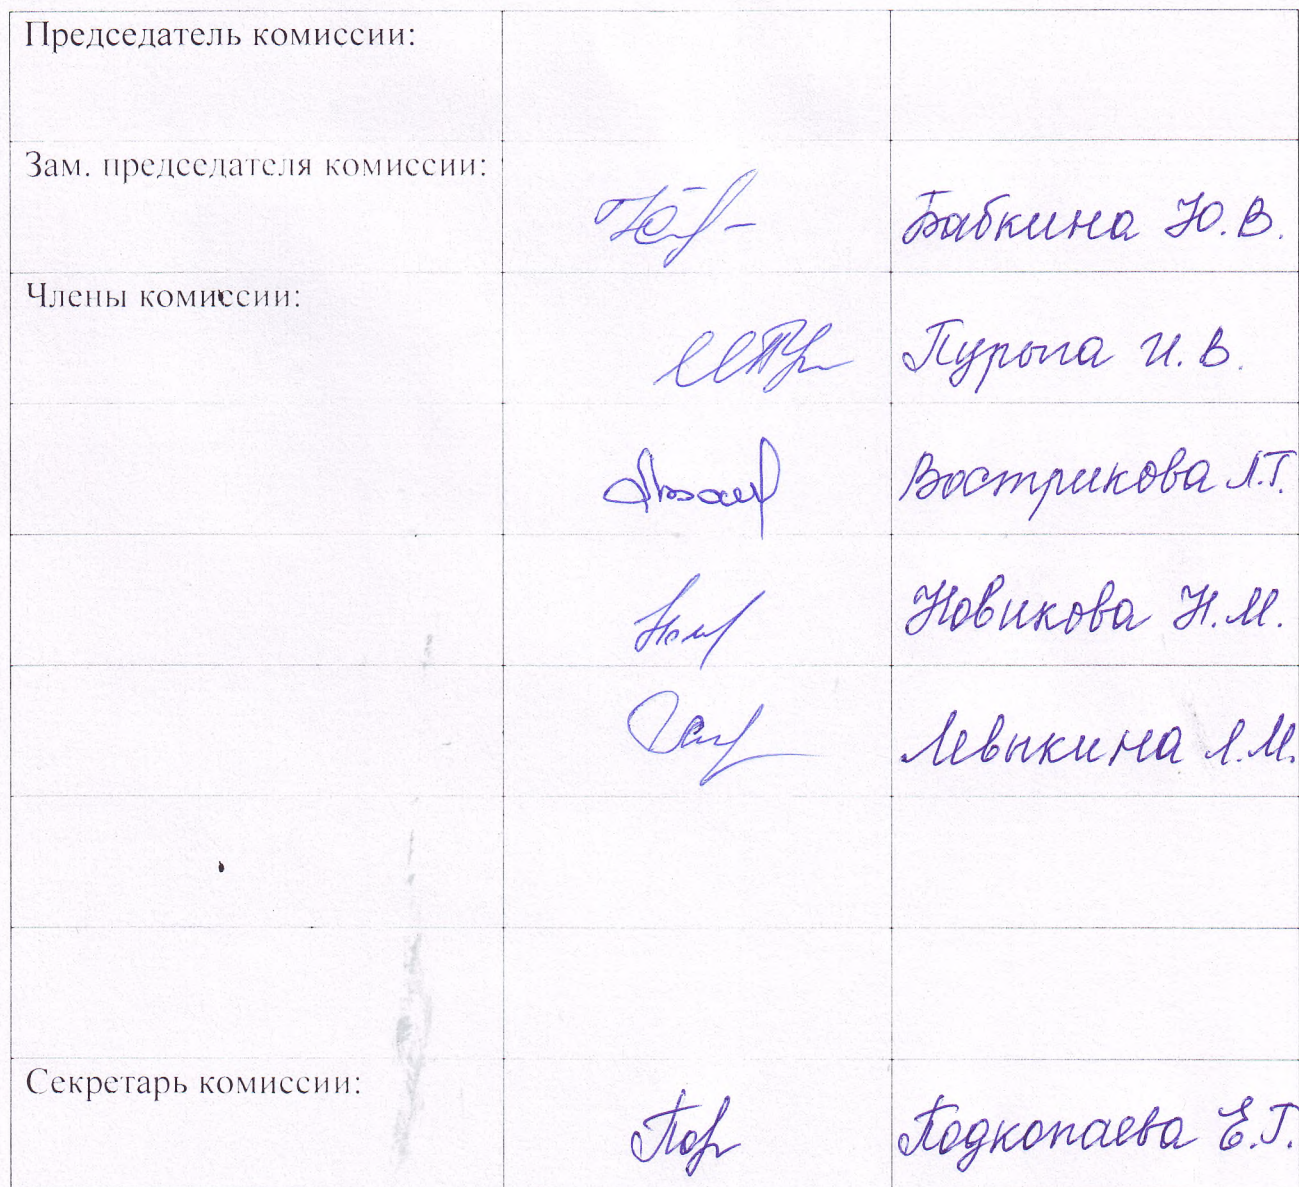 Председатель комиссии:
Зам. председателя комиссии:
Бабкина Ю.В.
Члены комиссии:
Пурыга И.В.
Вострикова Л.Г.
Новикова Н.М.
Левыкина Л.М.
Секретарь комиссии:
Подкопаева Е.Г.